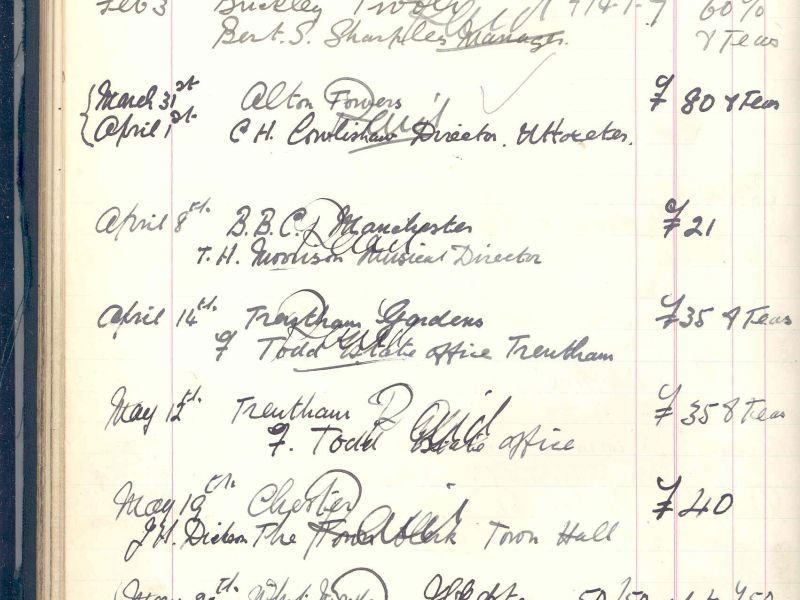 Feb 3 Buckley Tivoli Paid 60%
Bert. S. Sharples Manager. & Teas
March 31st Alton Towers Paid £ 80 & Teas
April 1st C H. Cowlishaw Director. Uttoxeter.
April 8th. B.B.C. Manchester Paid £ 21
T. H. Morrison Musical Director
April 14th. Trentham Gardens Paid £35 & Teas
F Todd Estate office Trentham
May 12th. Trentham Paid £35 & Teas
F. Todd Estate office
May 19th. Chester Paid £40
J.H. Dickson The Town Clerk Town Hall
50/50